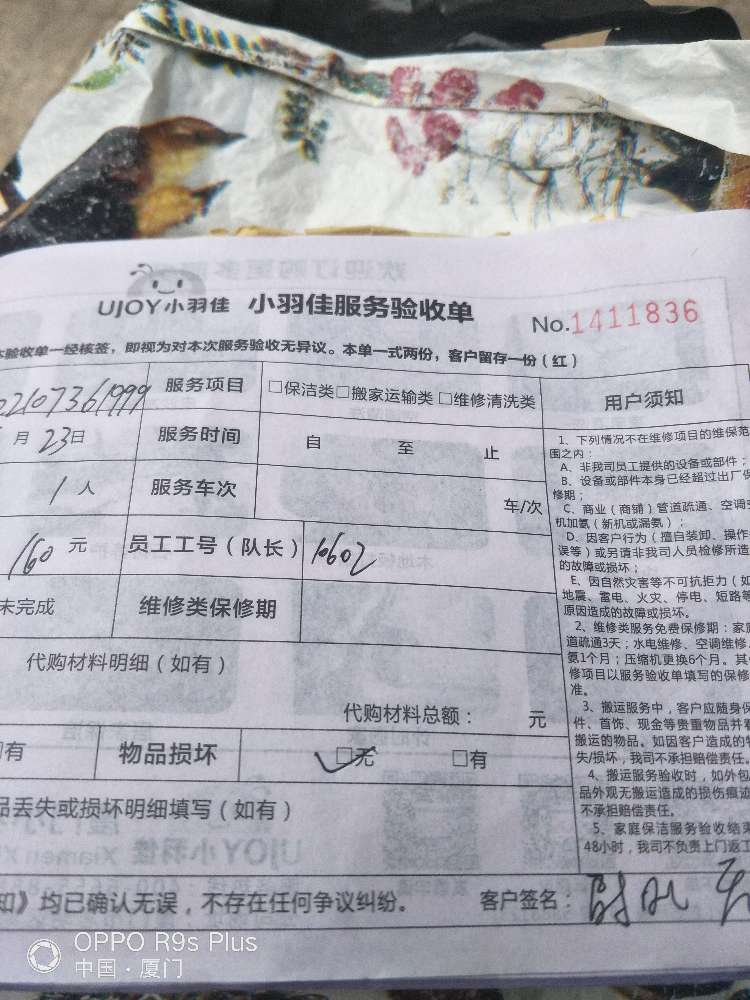 UJOY小羽佳 小羽佳服务验收单 No.1411836
验收单一经核签，即视为对本次服务验收无异议。本单一式两份，客户留存一份（红）
服务项目 □保洁类□搬家运输类□维修清洗类
月23日 服务时间 自 至 止
1人 服务车次 车/次
160元 员工工号（队长） 10602
未完成 维修类保修期
代购材料明细（如有）
代购材料总额： 元
有 物品损坏 □无 □有
品丢失或损坏明细填写（如有）
知》均已确认无误，不存在任何争议纠纷。 客户签名：
用户须知
1、下列情况不在维修项目的维保范
围之内：
A、非我司员工提供的设备或部件；
B、设备或部件本身已经超过出厂保
修期；
C、商业（商铺）管道疏通、空调
机加氨（新机或漏氨）；
D、因客户行为（擅自装卸、操作
误等）或另请非我司人员检修所造
的故障或损坏；
E、因自然灾害等不可抗拒力（如
地震、雷电、火灾、停电、短路等
原因造成的故障或损坏。
2、维修类服务免费保修期：家庭
道疏通3天；水电维修、空调维修
氨1个月；压缩机更换6个月。其
修项目以服务验收单填写的保修
准。
3、搬运服务中，客户应随身保
件、首饰、现金等贵重物品并看
搬运的物品。如因客户造成的物
失/损坏，我司不承担赔偿责任。
4、搬运服务验收时，如外包
品外观无搬运造成的损伤痕迹
不承担赔偿责任。
5、家庭保洁服务验收结束
48小时，我司不负责上门返工
OPPO R9s Plus
中国·厦门